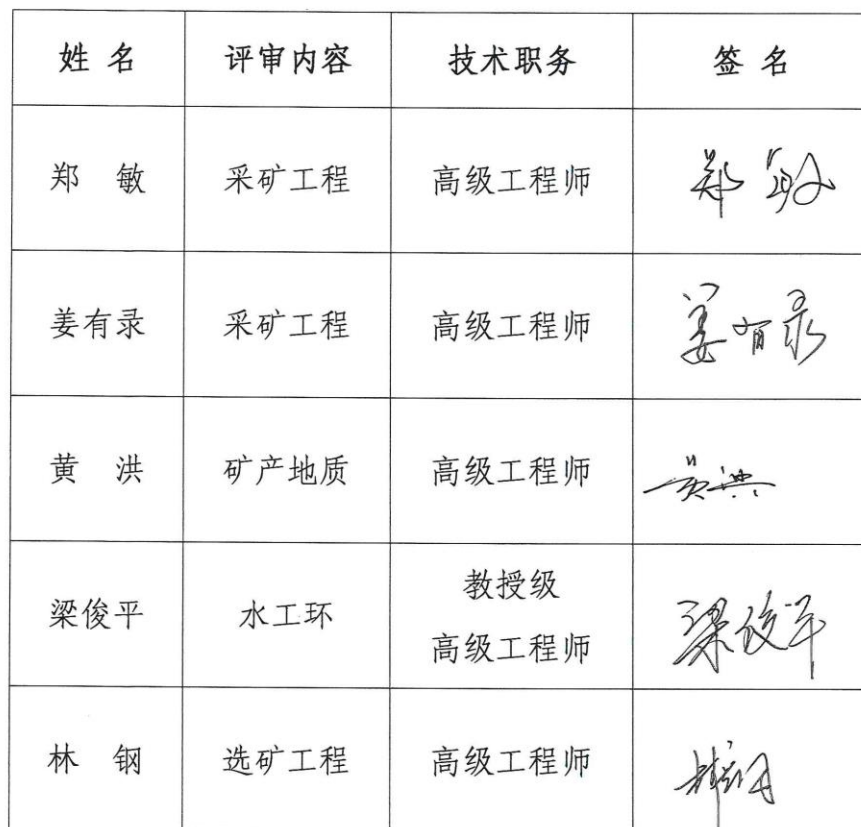 姓 名 评审内容 技术职务 签 名
郑 敏 采矿工程 高级工程师 郑敏
姜有录 采矿工程 高级工程师 姜有录
黄 洪 矿产地质 高级工程师 黄洪
梁俊平 水工环 教授级 高级工程师 梁俊平
林 钢 选矿工程 高级工程师 林钢